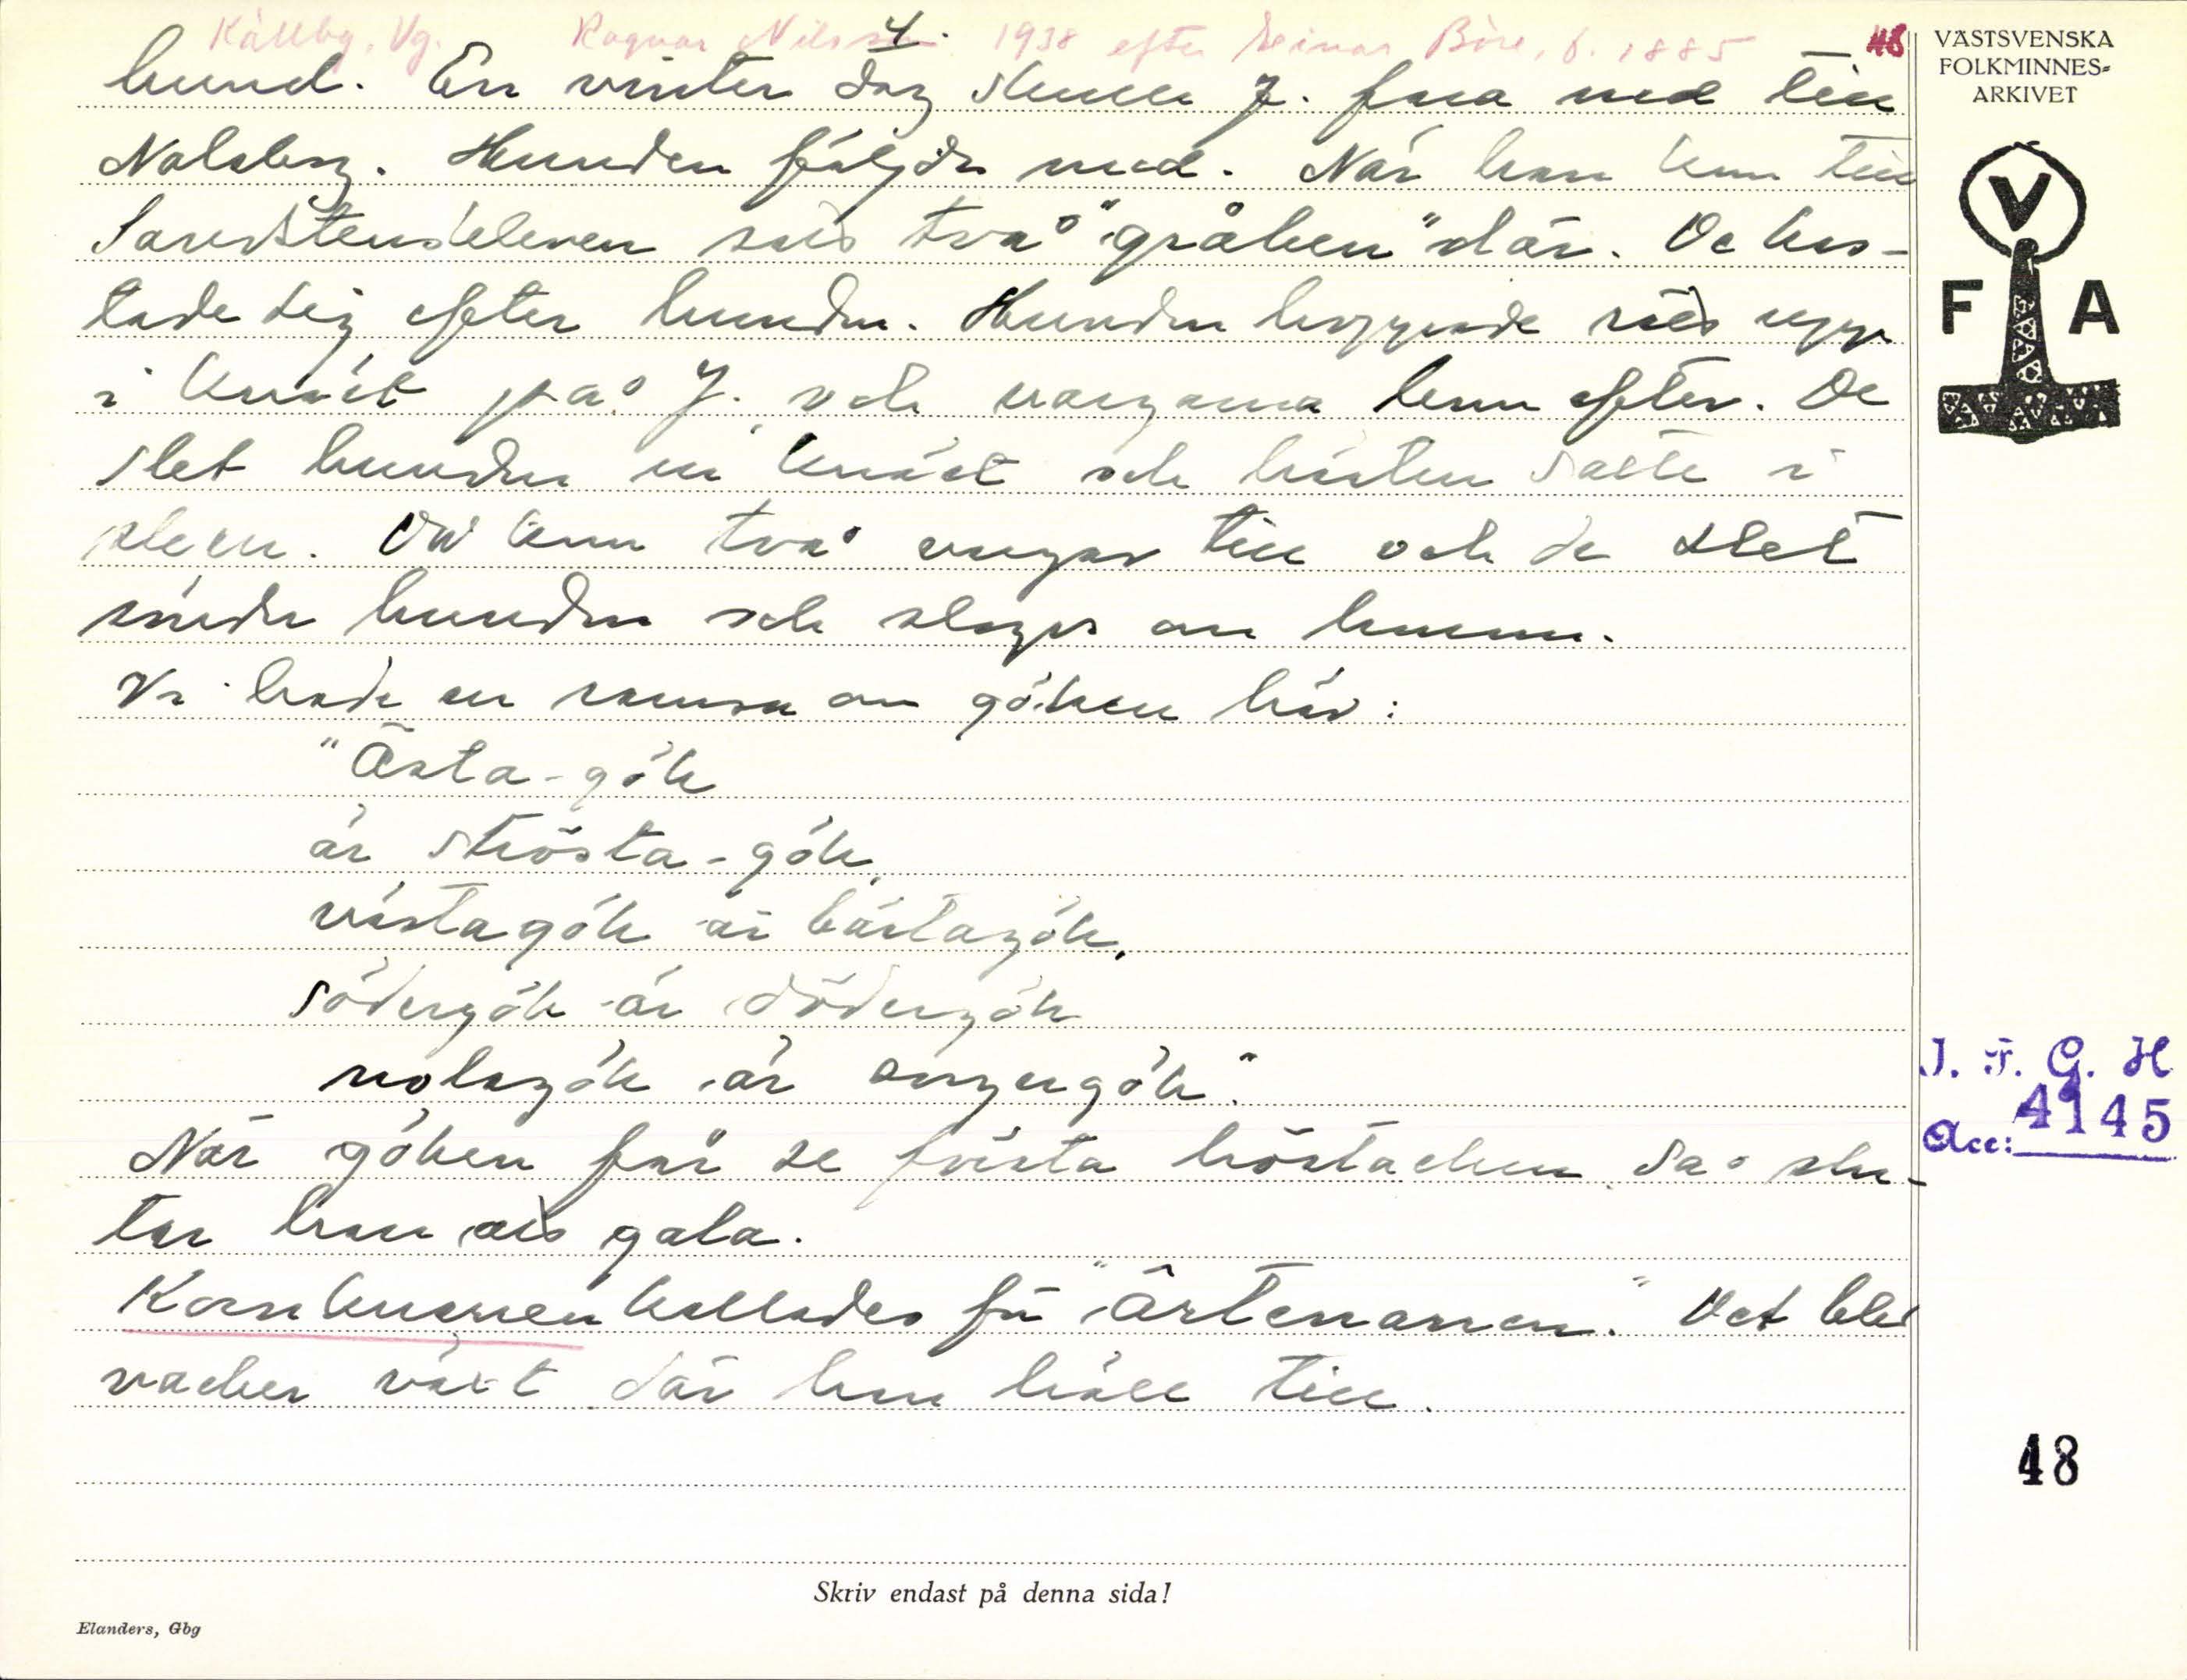 Källby, Vg. Ragnar Nilsson 1938 efter Einar Bäre, f. 1885
4.
48
hund. En vinter dag skulle J. fara ned till
Nolsberg. Hunden följde med. När han kom till
Sandstenskleven satt två "gråben" där. De kas-
tade sig efter hunden. Hunden hoppade rätt upp
i knäet på J. och vargarna kom efter. De
slet hunden ur knäet och hästen satte i
sken. Då kom två vargar till och de slet
sönder hunden och slogos om honom.
Vi hade en ramsa om göken här:
"Östa-gök
är trösta-gök,
västagök är bästagök,
södergök är dödergök
nolagök är sorgergök".
När göken får se första höstacken så slu-
tar han att gala.
Kornknarren kallades för "Årtenarren." Det blev
vacker växt där han höll till.
VÄSTSVENSKA
FOLKMINNES-
ARKIVET
V
F A
I. F. G. H
Acc: 4145
48
Skriv endast på denna sida!
Elanders, Gbg